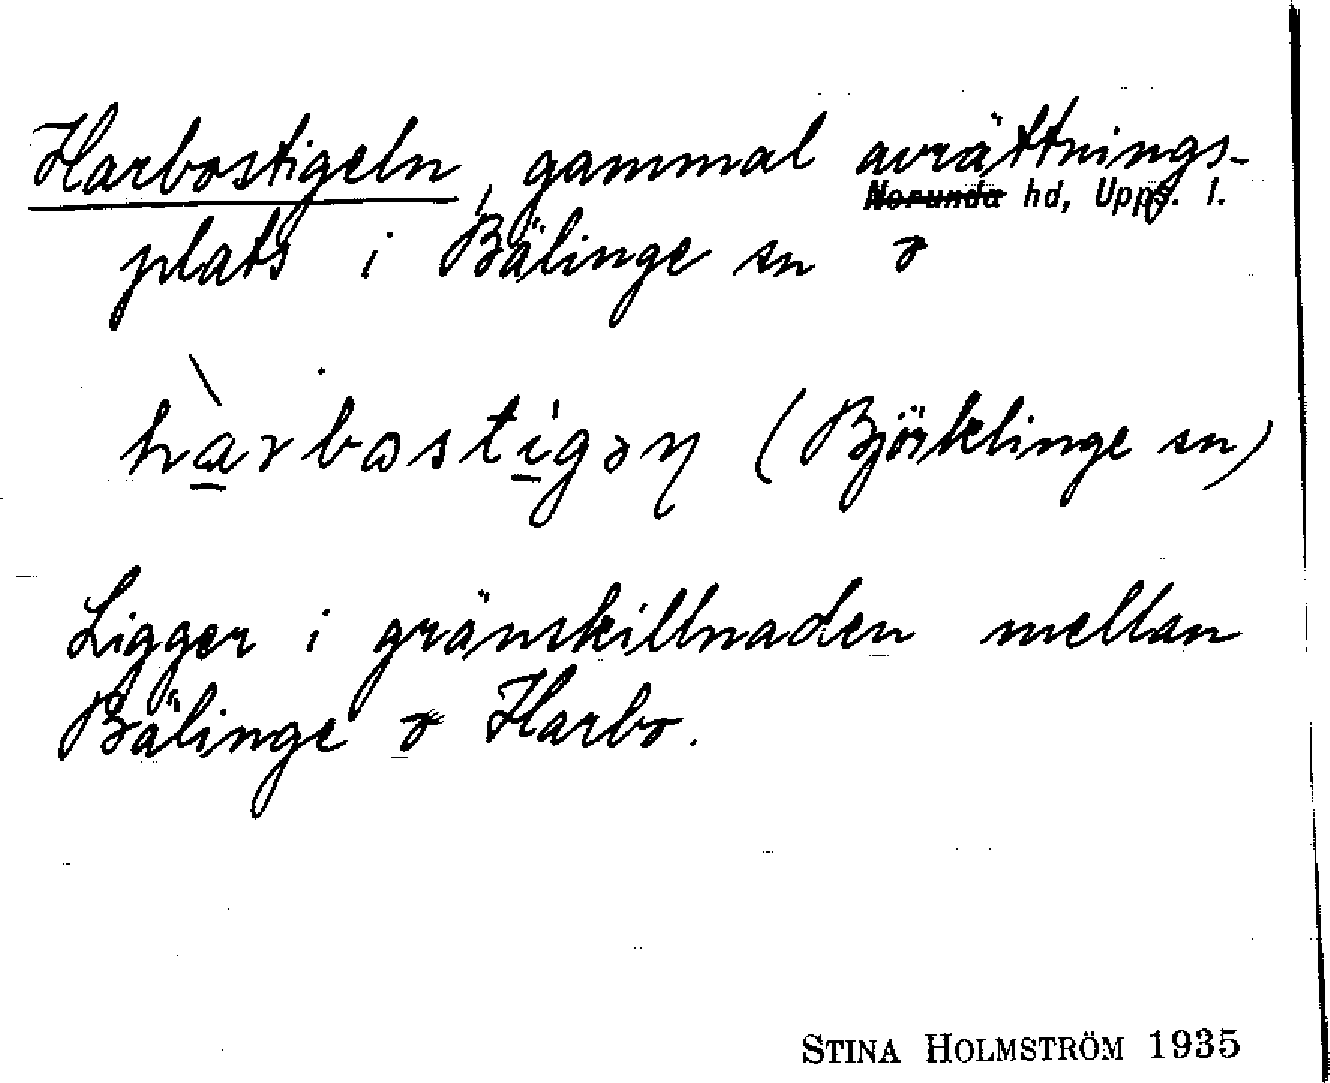 Harbostigeln, gammal avrättnings-
Norunda hd, Upps. l.
plats i Bälinge sn o
hàrbostigən (Björklinge sn)
Ligger i gränskillnaden mellan
Bälinge o Harbo.
STINA HOLMSTRÖM 1935